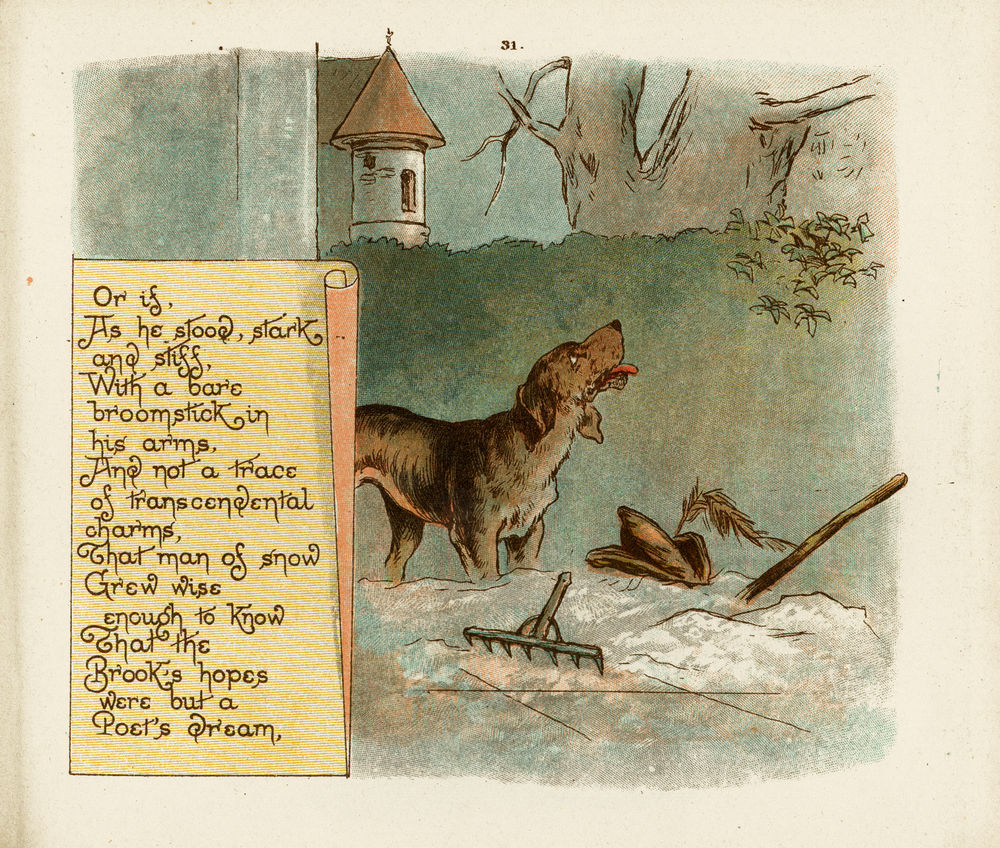 31.
Or if,
As he stood, stark
and stiff,
With a bare
broomstick in
his arms,
And not a trace
of transcendental
charms,
That man of snow
Grew wise
enough to know
That the
Brook's hopes
were but a
Poet's dream,